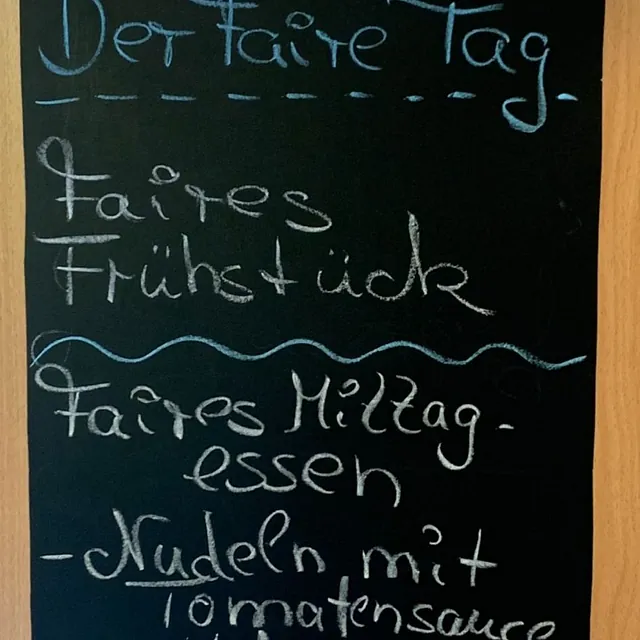 Der Faire Tag
Faires
Frühstück
Faires Mittag-
essen
- Nudeln mit
Tomatensauce